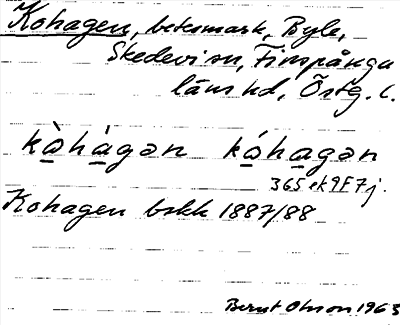 Kohagen, betesmark, Byle,
Skedevi sn, Finspånga
läns hd, Östg. l.
kòhàgən kóhagən
365 ek 9F7j.
Kohagen bskk 1887/88
Bernt Olsson 1963